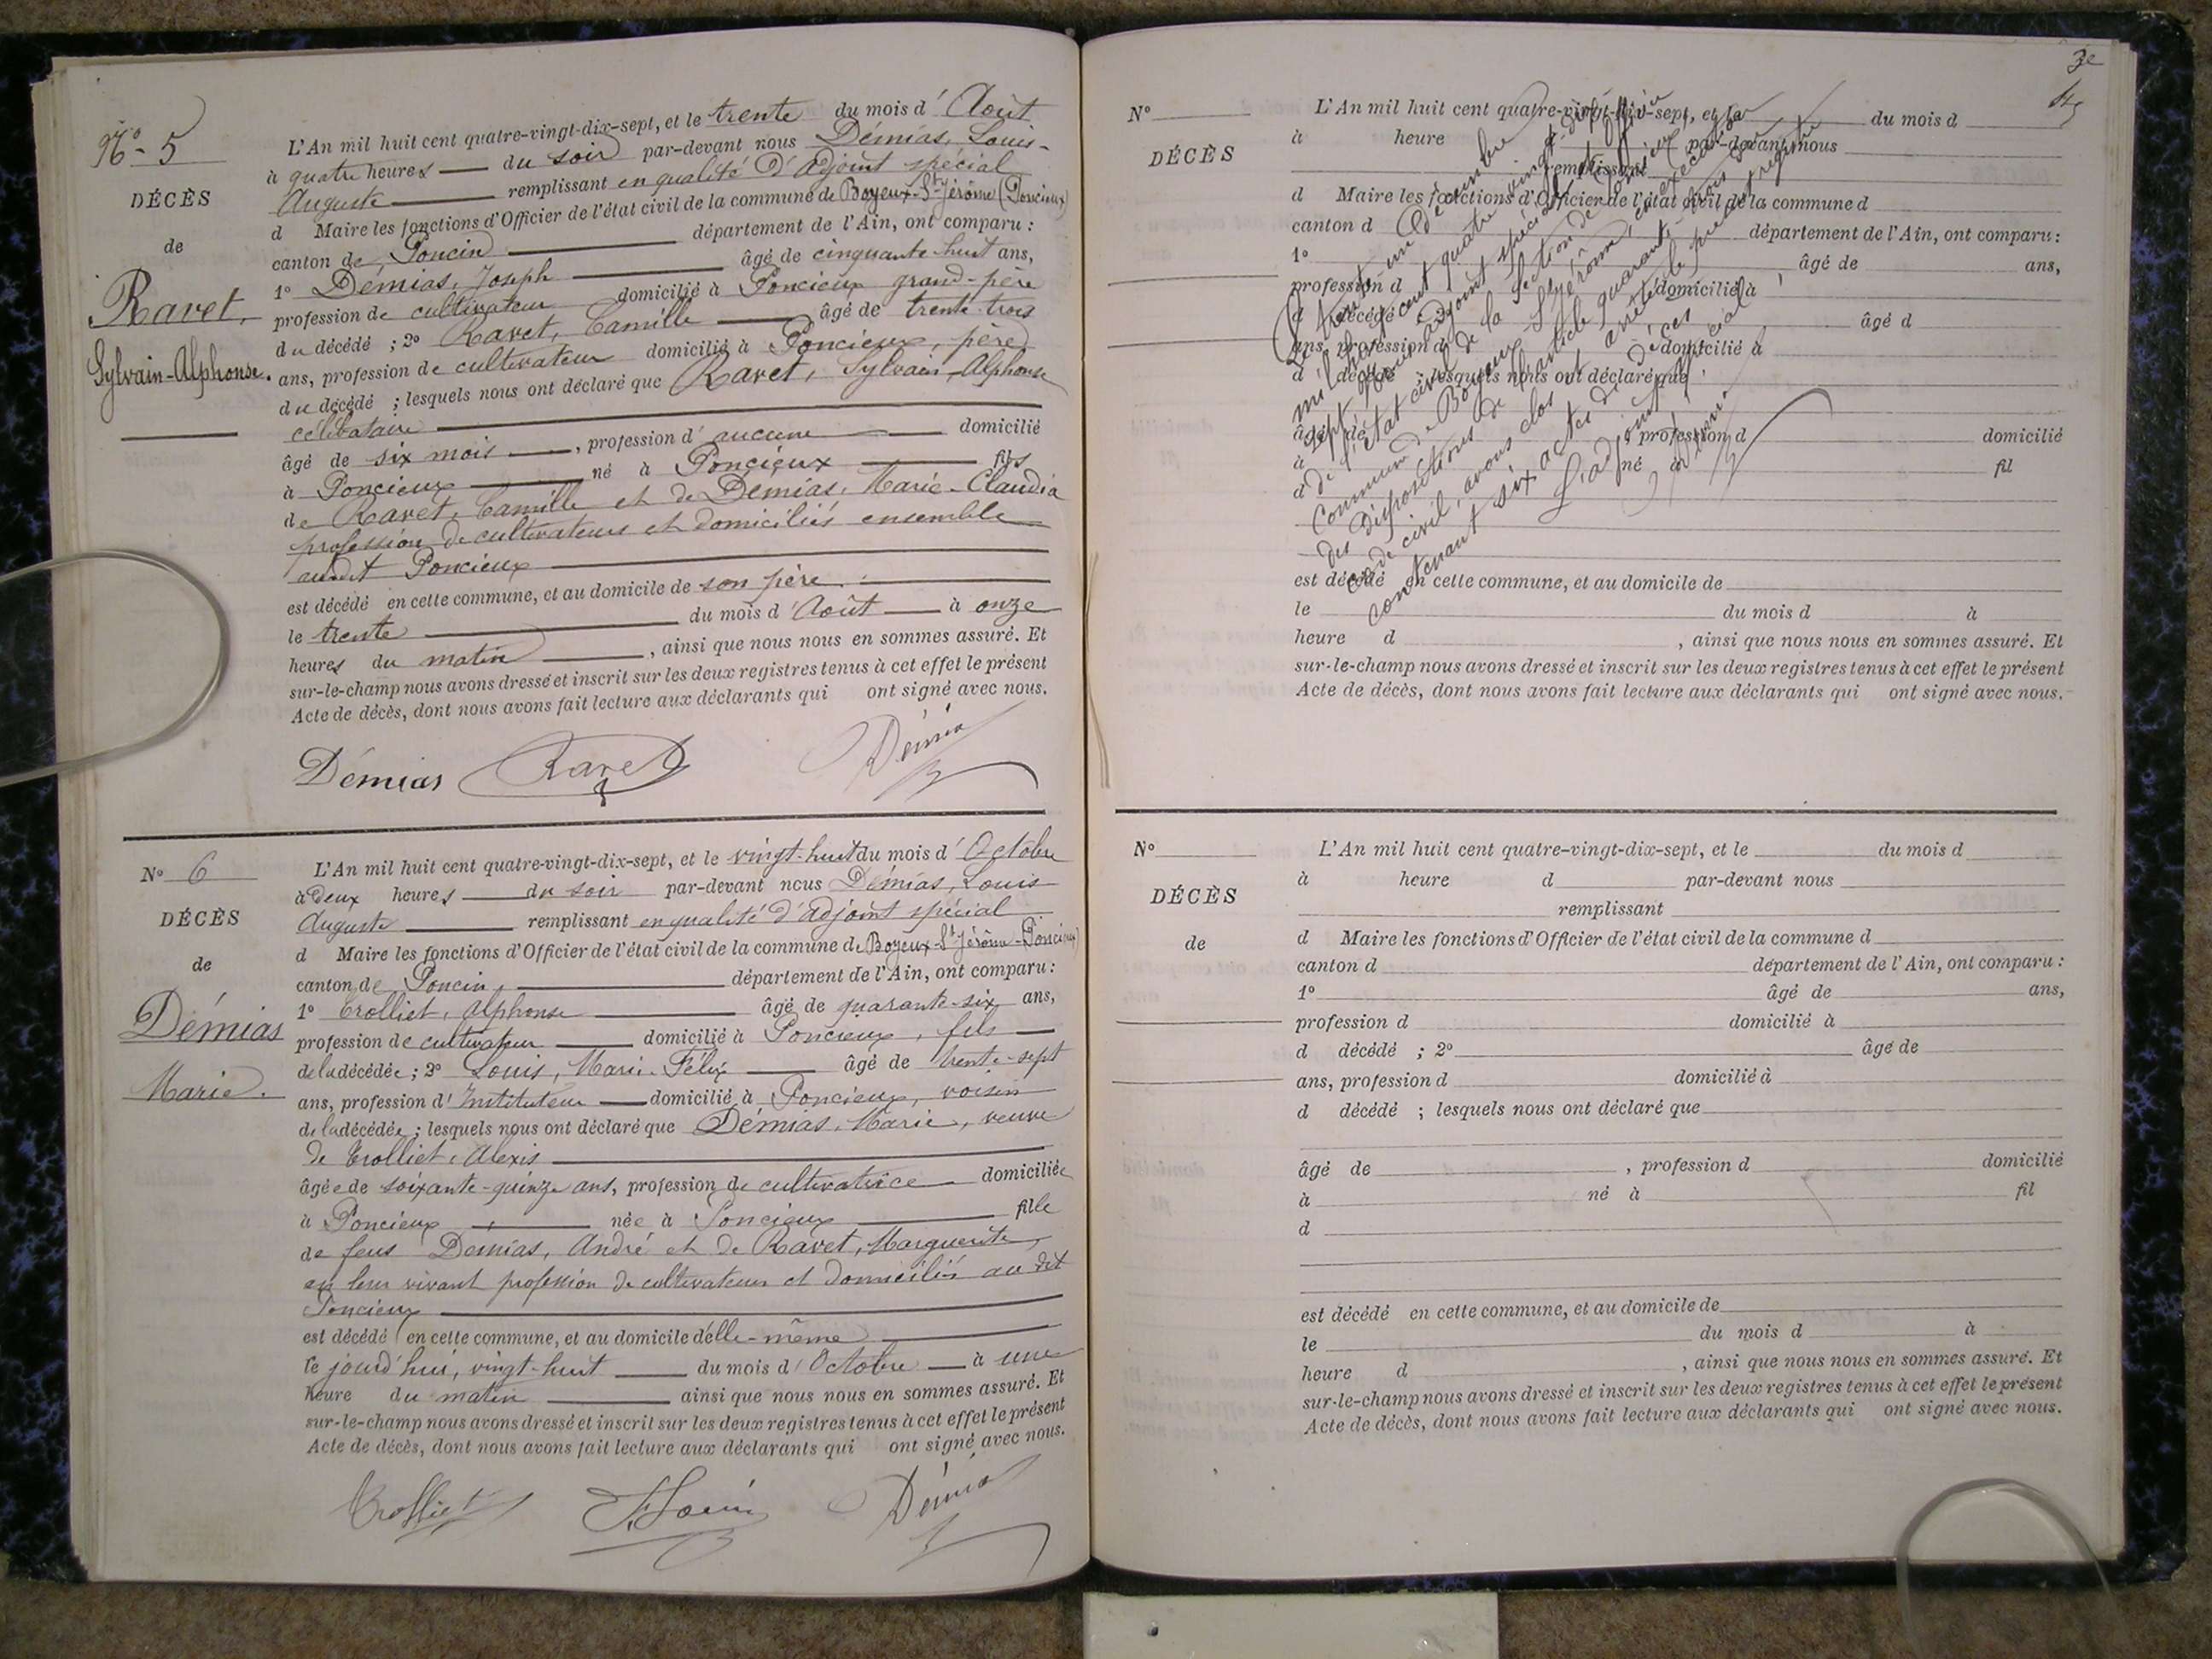 N° 5
DÉCÈS
de
Ravet,
Sylvain-Alphonse.
L'An mil huit cent quatre-vingt-dix-sept, et le trente du mois d'Août
à quatre heures du soir par-devant nous Démias, Louis-
Auguste remplissant en qualité d'adjoint spécial
d Maire les fonctions d'Officier de l'état civil de la commune de Boyeux-St Jérôme (Poncieux)
canton de Poncin département de l'Ain, ont comparu :
1° Démias, Joseph âgé de cinquante-huit ans,
profession de cultivateur domicilié à Poncieux grand-père
du décédé ; 2° Ravet, Camille âgé de trente-trois
ans, profession de cultivateur domicilié à Poncieux, père
du décédé ; lesquels nous ont déclaré que Ravet, Sylvain-Alphonse
célibataire
âgé de six mois, profession d'aucune domicilié
à Poncieux né à Poncieux fils
de Ravet, Camille et de Démias, Marie-Claudia
profession de cultivateurs et domiciliés ensemble
audit Poncieux
est décédé en cette commune, et au domicile de son père
le trente du mois d'Août à onze
heures du matin, ainsi que nous nous en sommes assuré. Et
sur-le-champ nous avons dressé et inscrit sur les deux registres tenus à cet effet le présent
Acte de décès, dont nous avons fait lecture aux déclarants qui ont signé avec nous.
Démias Ravet Démias
N° 6
DÉCÈS
de
Démias
Marie.
L'An mil huit cent quatre-vingt-dix-sept, et le vingt-huit du mois d'Octobre
à deux heures du soir par-devant nous Démias, Louis
Auguste remplissant en qualité d'adjoint spécial
d Maire les fonctions d'Officier de l'état civil de la commune de Boyeux-St Jérôme-(Poncieux)
canton de Poncin, département de l'Ain, ont comparu :
1° Trolliet, Alphonse âgé de quarante-six ans,
profession de cultivateur domicilié à Poncieux, fils
de la décédée ; 2° Louis, Marie-Félix âgé de trente-sept
ans, profession d'Instituteur domicilié à Poncieux, voisin
de la décédée ; lesquels nous ont déclaré que Démias, Marie, veuve
de Trolliet, Alexis
âgée de soixante-quinze ans, profession de cultivatrice domiciliée
à Poncieux née à Poncieux fille
de feus Démias, André et de Ravet, Marguerite,
en leur vivant profession de cultivateurs et domiciliés au dit
Poncieux
est décédé en cette commune, et au domicile d'elle-même
le jourd'hui, vingt-huit du mois d'Octobre à une
heure du matin ainsi que nous nous en sommes assuré. Et
sur-le-champ nous avons dressé et inscrit sur les deux registres tenus à cet effet le présent
Acte de décès, dont nous avons fait lecture aux déclarants qui ont signé avec nous.
Trolliet F. Louis Démias
N°
DÉCÈS
L'An mil huit cent quatre-vingt-dix-sept, et le du mois d
à heure d par-devant nous
remplissant
d Maire les fonctions d'Officier de l'état civil de la commune d
canton d département de l'Ain, ont comparu :
1° âgé de ans,
profession d domicilié à
d décédé ; 2° âgé d
ans, profession d domicilié à
d décédé ; lesquels nous ont déclaré que
âgé de , profession d domicilié
à né à fil
d
est décédé en cette commune, et au domicile de
le du mois d à
heure d , ainsi que nous nous en sommes assuré. Et
sur-le-champ nous avons dressé et inscrit sur les deux registres tenus à cet effet le présent
Acte de décès, dont nous avons fait lecture aux déclarants qui ont signé avec nous.
Le trente un décembre
mil huit cent quatre vingt dix
sept, nous adjoint spécial et officier
de l'état civil de la section de Poncieux
commune de Boyeux St Jérôme, en exécution
des dispositions de l'article quarante-trois du
code civil, avons clos et arrêté le présent registre
contenant six actes de décès
L'adjoint spécial,
Démias
N°
DÉCÈS
de
L'An mil huit cent quatre-vingt-dix-sept, et le du mois d
à heure d par-devant nous
remplissant
d Maire les fonctions d'Officier de l'état civil de la commune d
canton d département de l'Ain, ont comparu :
1° âgé de ans,
profession d domicilié à
d décédé ; 2° âgé de
ans, profession d domicilié à
d décédé ; lesquels nous ont déclaré que
âgé de , profession d domicilié
à né à fil
d
est décédé en cette commune, et au domicile de
le du mois d à
heure d , ainsi que nous nous en sommes assuré. Et
sur-le-champ nous avons dressé et inscrit sur les deux registres tenus à cet effet le présent
Acte de décès, dont nous avons fait lecture aux déclarants qui ont signé avec nous.